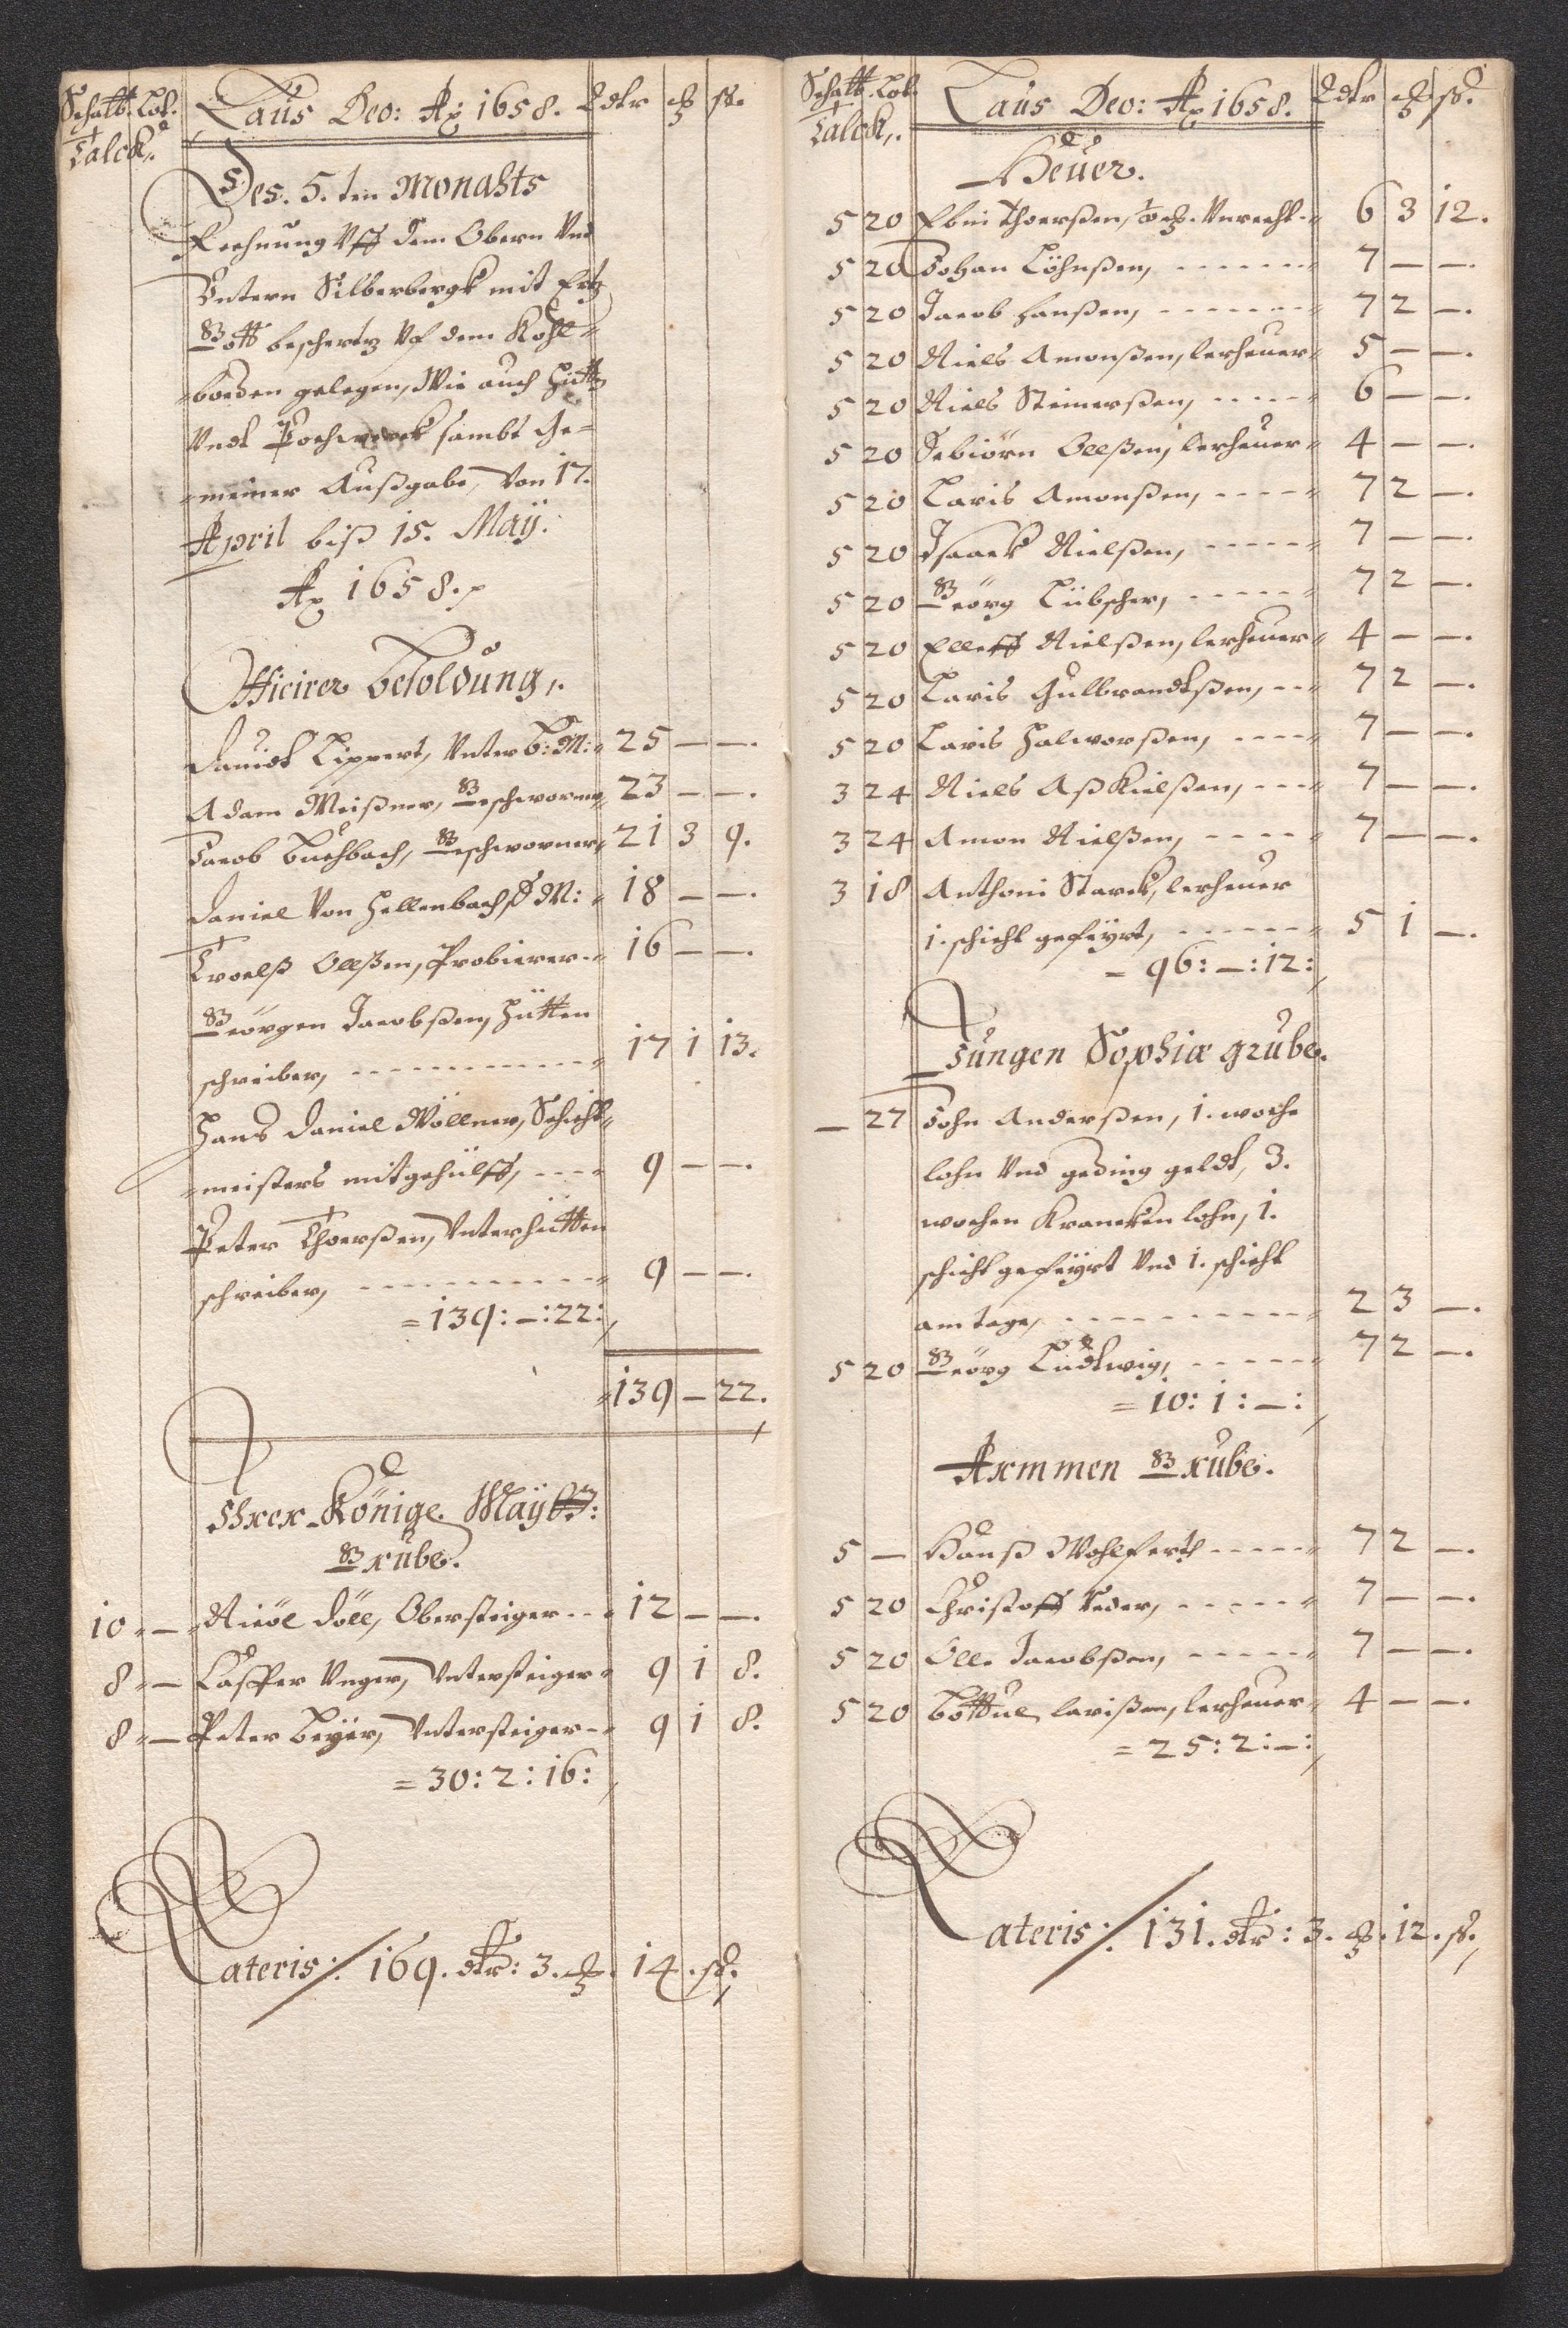 Schatt. Lot.
Talck.
Laus Deo: Aō 1658. Rdlr ß
Des. 5. ten Monahts
Rechnung Vff dem Obern Und
Untern Silberbergk mit Ertz
Gott bescherts Vf dem Kohl=
=boden gelegen, Wie auch Hütt
Undt Pochwerck sambt Ge=
=meiner Außgabe, Von 17.
April biß 15. Maÿ.
Aō 1658.
Officirer besoldung,.
Davidt Lippert, Unter b: M: 25 — —.
Adam Meißner, Geschworner 23 — —.
Jacob Buchbach, Geschworner 21 3 9.
Daniel Von Hellenbach, M: 18 — —.
Troelß Ollßen, Probierer 16 — —.
Geörgen Jacobßen, Hütten
schreiber, 17 1 13.
Hans Daniel Wöllner, Schicht=
=meisters mitgehülff, 9 — —.
Peter Thoerßen, Unterhütten
schreiber, 9 — —.
=139:—:22:
=139 — 22.
Ihrer Könige Maÿtt:
Grube.
10 — Nicöl Döll, Obersteiger 12 — —.
8 — Casper Unger, Untersteiger 9 1 8.
8 — Peter Beÿer, Untersteiger 9 1 8.
=30:2:16:
Lateris:/ 169. dlr: 3. 14. ß.
Schatt. Lot.
Talck,.
Laus Deo: Aō 1658. Rdlr ß.
Heüer.
5 20 Ebni Thoerßen, Unrecht 6 3 12.
5 20 Johan Löhnßen, 7 — —.
5 20 Jacob Hanßen, 7 2 —.
5 20 Niels Amonßen, lerheuer 5 — —.
5 20 Niels Steinerßen, 6 — —.
5 20 Sebiörn Ollßen, lerheuer 4 — —.
5 20 Laris Amonßen, 7 2 —.
5 20 Isaack Nielßen, 7 — —.
5 20 Geörg Lübscher, 7 2 —.
5 20 Elleff Nielßen, lerheuer 4 — —.
5 20 Laris Gulbrandtßen, 7 2 —.
5 20 Laris Halworßen, 7 — —.
3 24 Niels Aßkielßen, 7 — —.
3 24 Amon Nielßen, 7 — —.
3 18 Anthoni Starck, lerheuer
1. schicht gefeÿrt, 5 1 —.
=96:—:12:
Jungen Sophiæ grube.
— 27 John Anderßen, 1. woche
lohn Und geding geldt, 3.
wochen Krancken lohn, 1.
schicht gefeÿrt Und 1. schicht
am tage, 2 3 —.
5 20 Geörg Ludtwig, 7 2 —.
=10:1:—:
Armmen Grube.
5 — Hanß Wohlfarth 7 2 —.
5 20 Christoff Veder, 7 — —.
5 20 Olle Jacobßen, 7 — —.
5 20 Bottul larißen, lerheuer 4 — —.
=25:2:—:
Lateris:/ 131. dlr: 3. 12. ß.